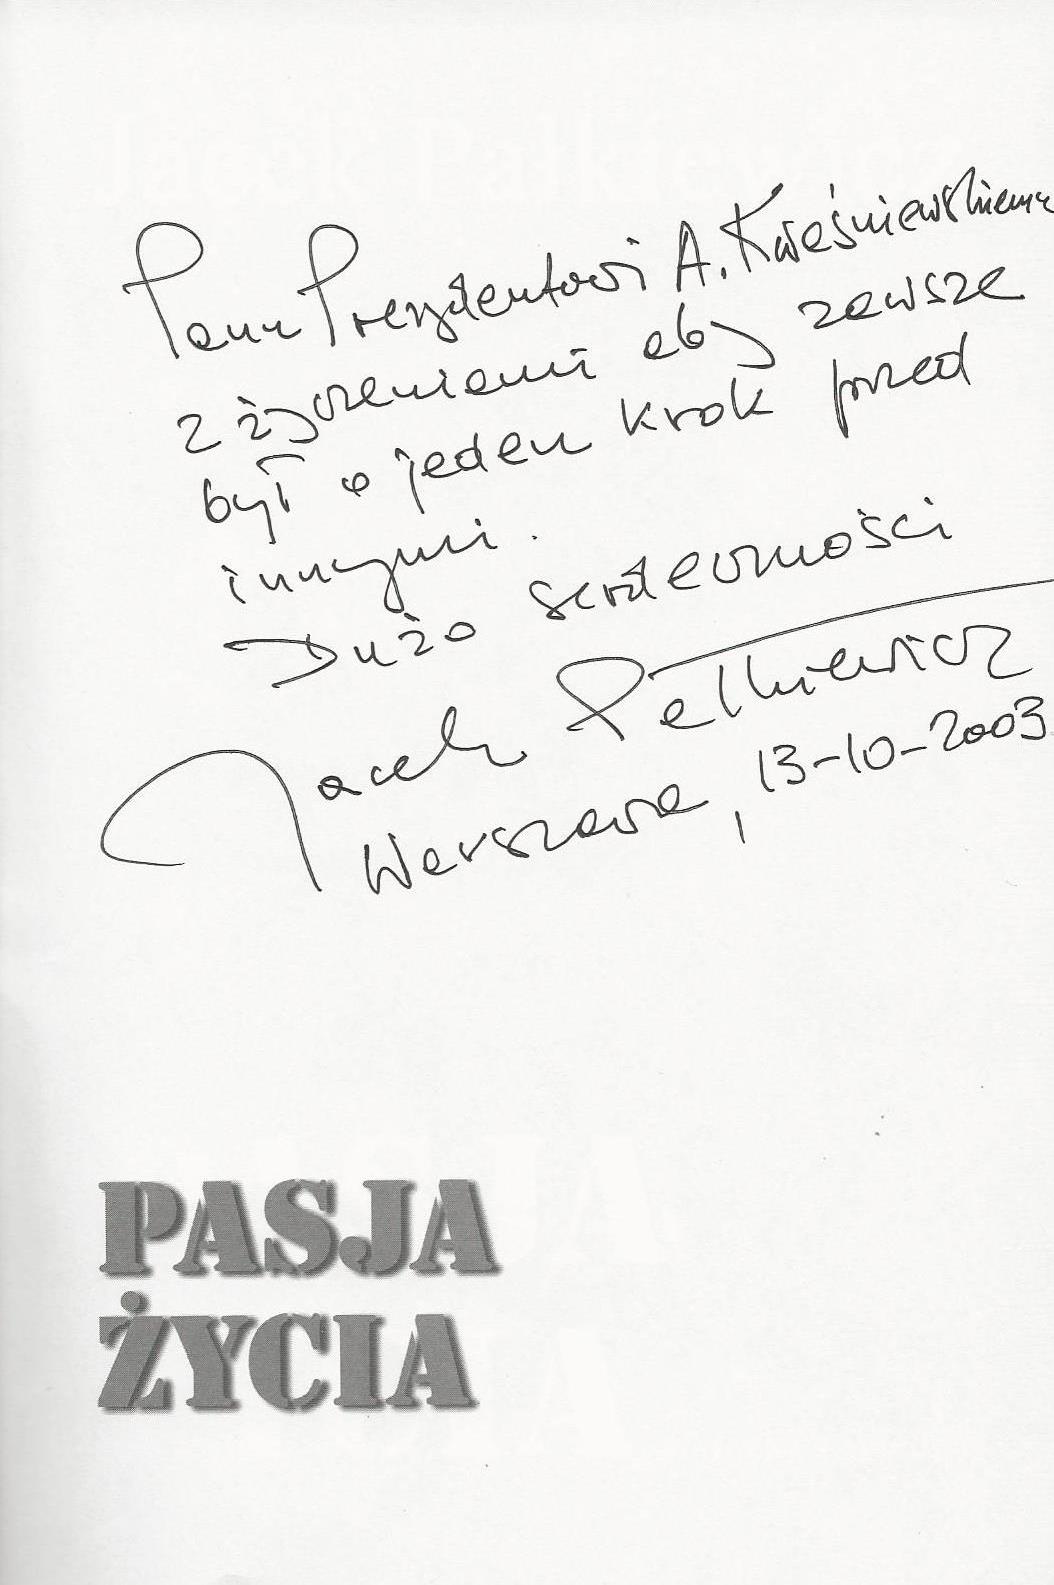 Panu Prezydentowi A. Kwaśniewskiemu
z życzeniami aby zawsze
był o jeden krok przed
innymi.
Dużo serdeczności
Jacek Pałkiewicz
Warszawa, 13-10-2003
PASJA
ŻYCIA